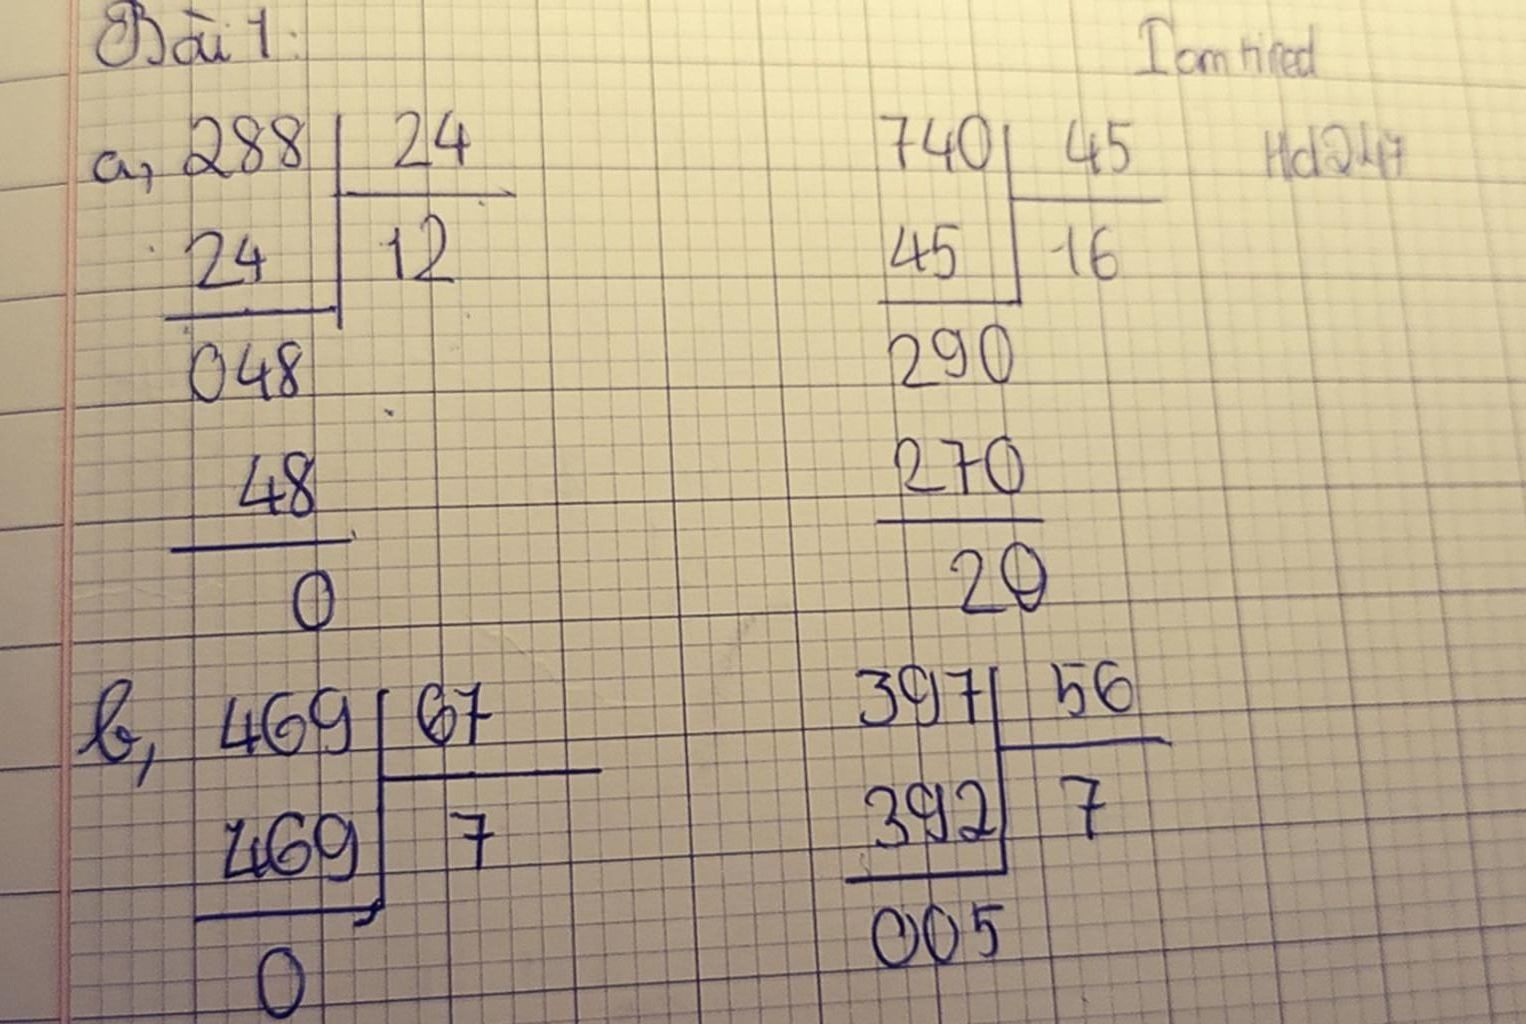 Bài 1:
I am tired
a, 288 24
740 45
Hd247
24 12
45 16
048
290
48
270
0
20
b, 469 67
397 56
469 7
392 7
0
005